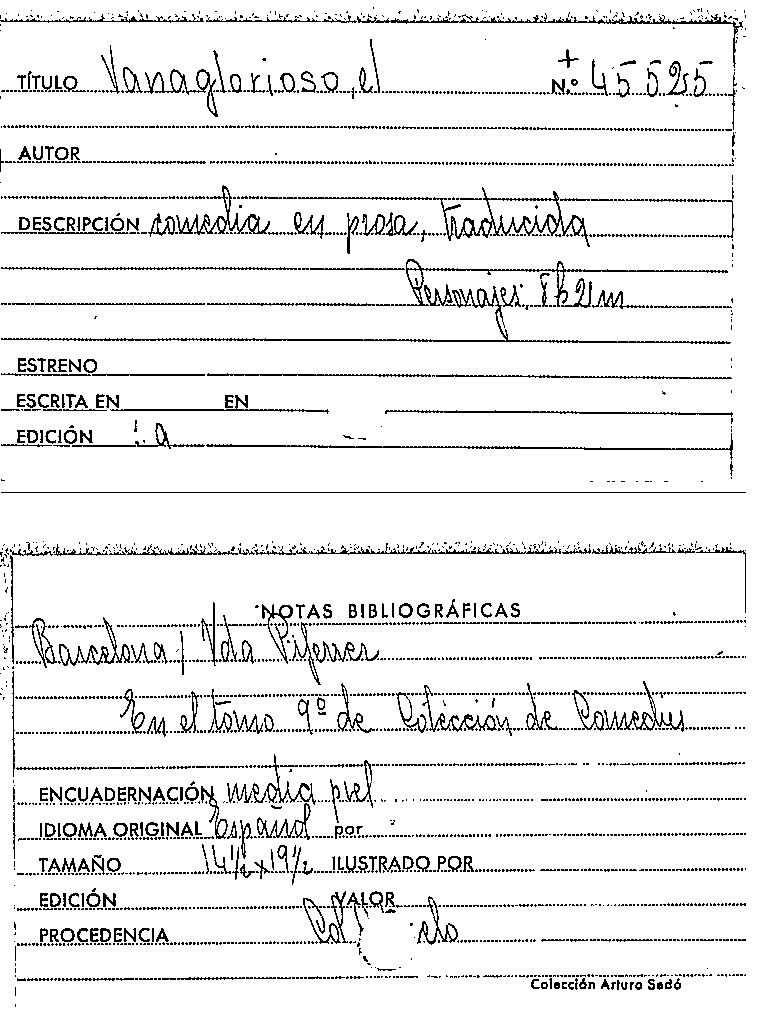 TÍTULO Vanaglorioso, el + N.º 45525
AUTOR
DESCRIPCIÓN comedia en prosa, traducida
Personajes: 8h 2m
ESTRENO
ESCRITA EN EN
EDICIÓN
NOTAS BIBLIOGRÁFICAS
Barcelona / Vda Piferrer
En el tomo 9º de Colección de Comedias
ENCUADERNACIÓN media piel
IDIOMA ORIGINAL Español por
TAMAÑO 14½ x 19½ ILUSTRADO POR
EDICIÓN VALOR
PROCEDENCIA
Colección Arturo Sedó